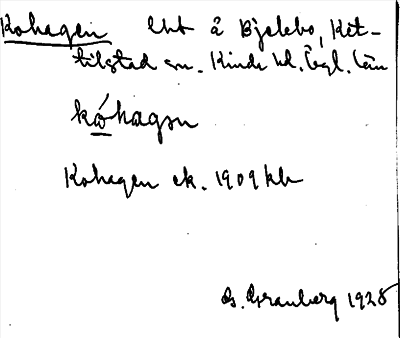 Kohagen lht å Bjelebo, Ket-
tilstad sn. Kinda hd. Ögl. län
kóhagen
Kohagen ek. 1909 kb
G. Granberg 1928